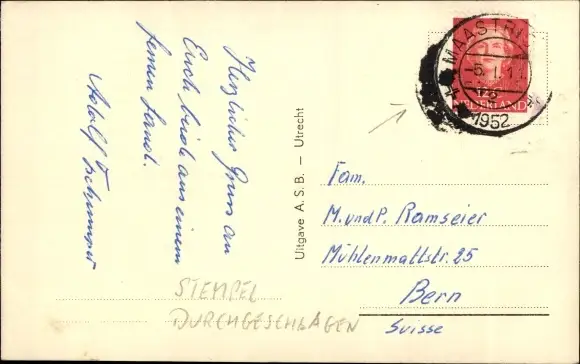 Herzlicher Gruss an
Euch beide aus einem
fernen Land.
Adolf
Uitgave A. S. B. — Utrecht
MAASTRICHT
1952
NEDERLAND
Fam.
M. und P. Ramseier
Mühlenmattstr. 25
Bern
Suisse
STEMPEL
DURCHGESCHLAGEN